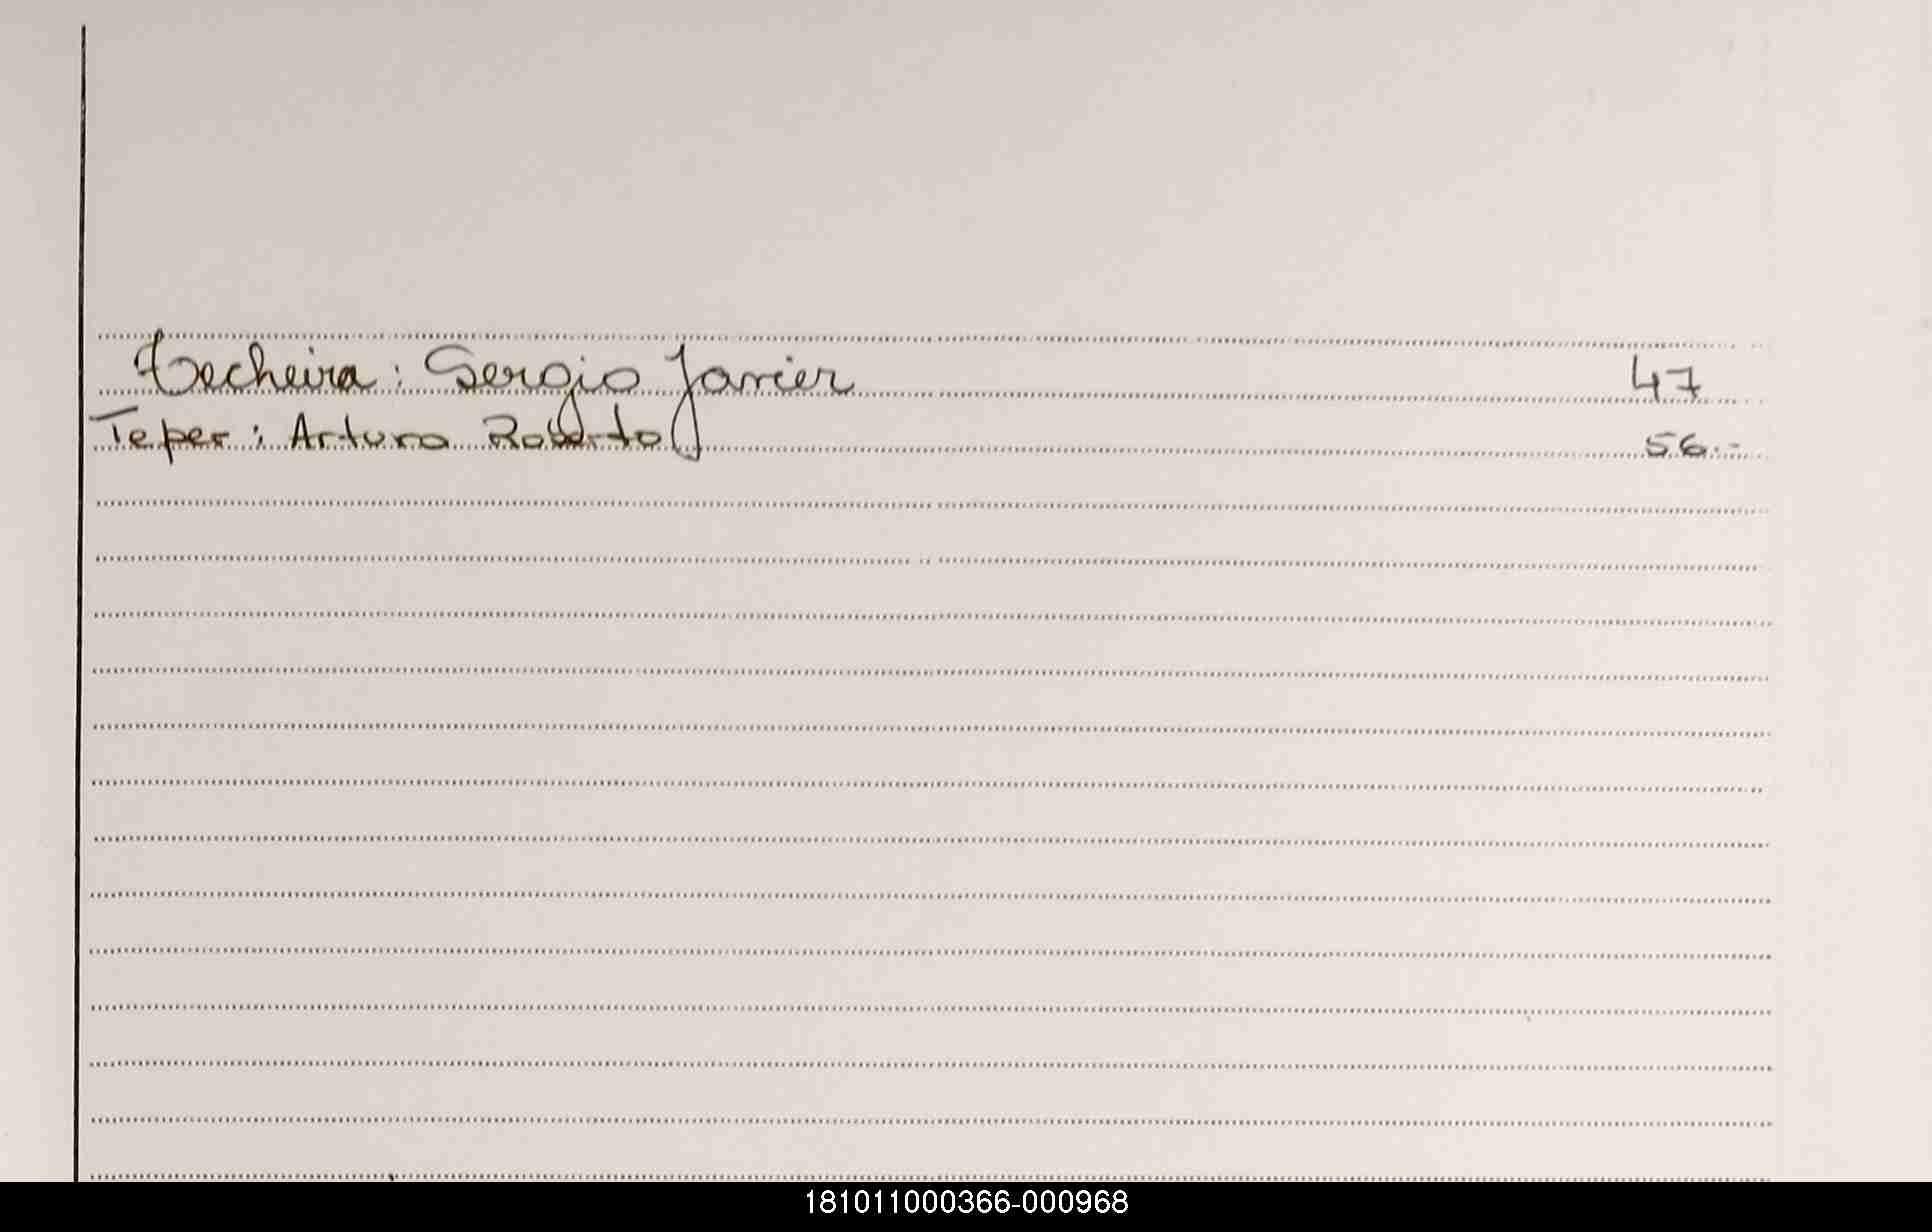 Techeira: Sergio Javier 47
Teper: Arturo Roberto 56.-
181011000366-000968